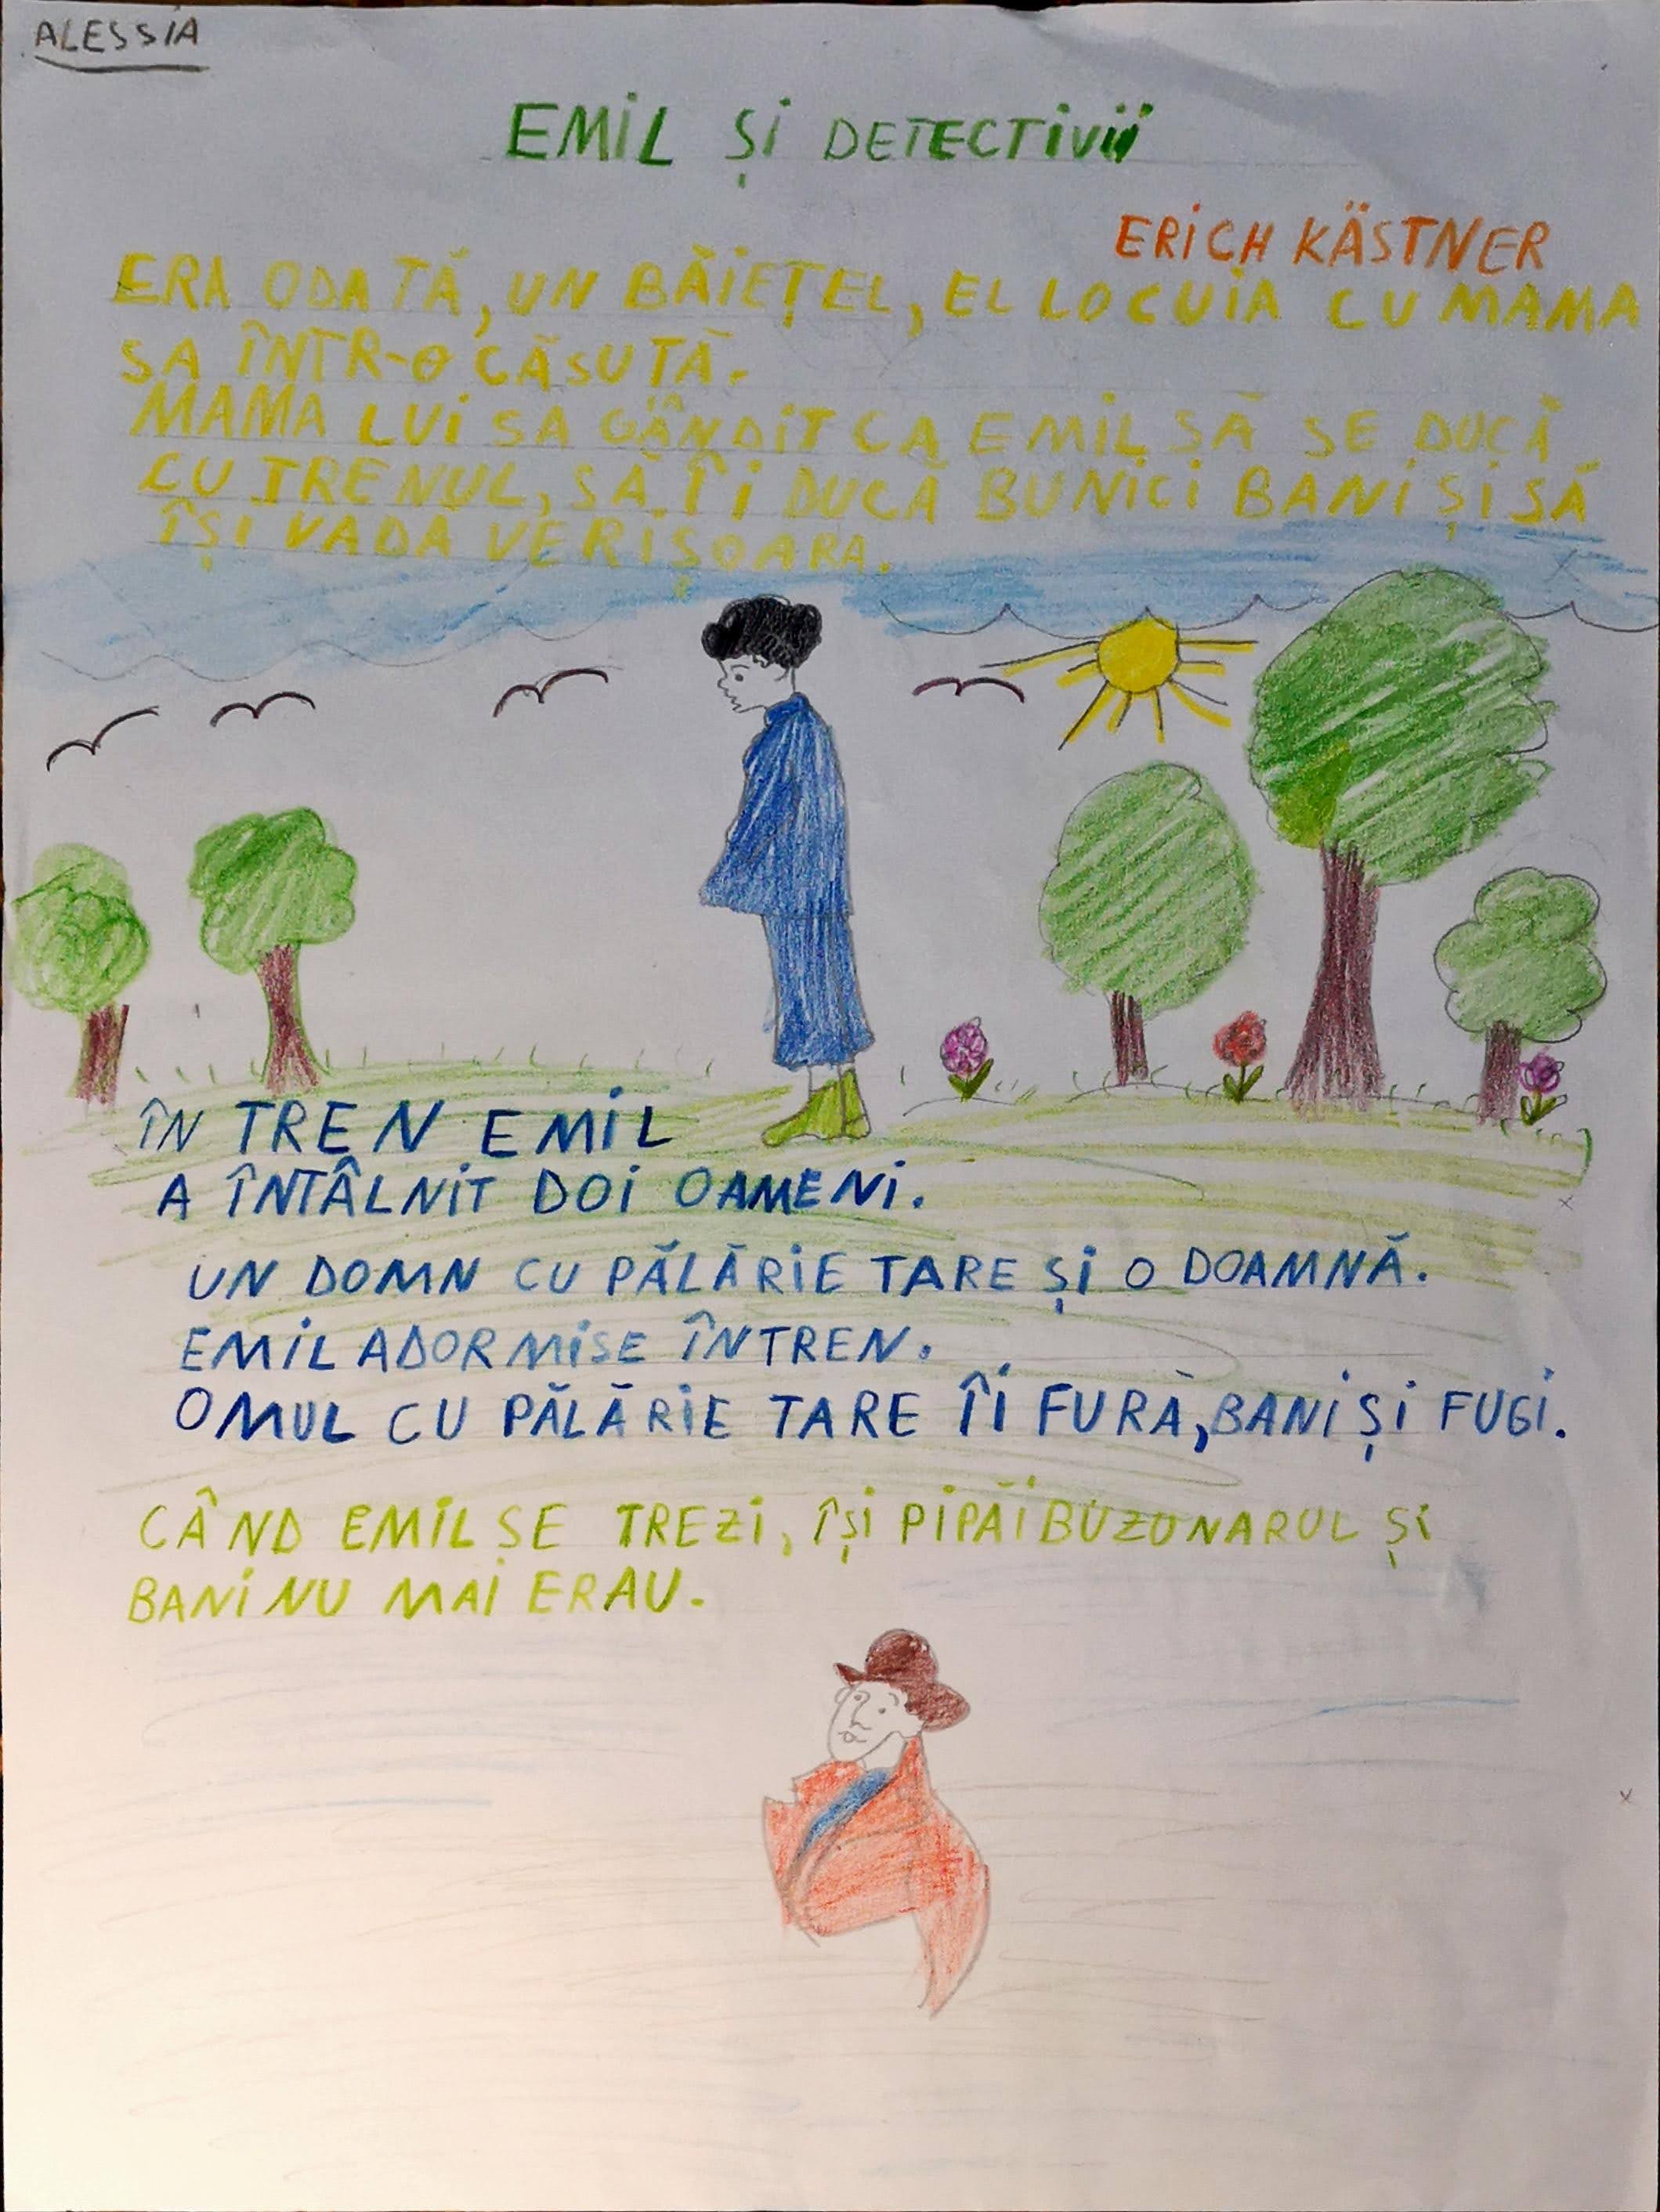 ALESSIA
EMIL ȘI DETECTIVII
ERICH KÄSTNER
ERA ODATĂ, UN BĂIEȚEL, EL LOCUIA CU MAMA
SA ÎNTR-O CĂSUTĂ.
MAMA LUI SA GÂNDIT CA EMIL SĂ SE DUCĂ
CU TRENUL, SĂ ÎI DUCĂ BUNICI BANI ȘI SĂ
ÎȘI VADĂ VERIȘOARA.
ÎN TREN EMIL
A ÎNTÂLNIT DOI OAMENI.
UN DOMN CU PĂLĂRIE TARE ȘI O DOAMNĂ.
EMIL ADORMISE ÎN TREN.
OMUL CU PĂLĂRIE TARE ÎI FURĂ, BANI ȘI FUGI.
CÂND EMIL SE TREZI, ÎȘI PIPĂI BUZONARUL ȘI
BANI NU MAI ERAU.